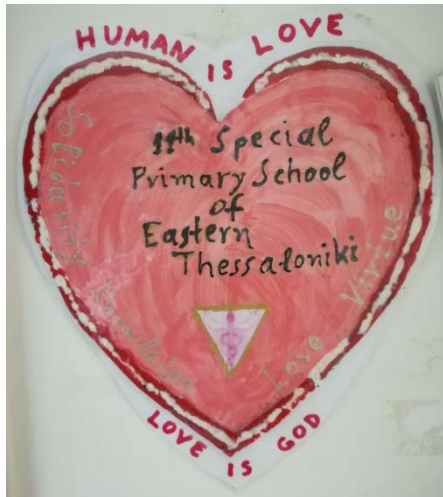 HUMAN IS LOVE
11th Special
Primary School
of
Eastern
Thessaloniki
Solidarity
Knowledge
Love Virtue
LOVE IS GOD